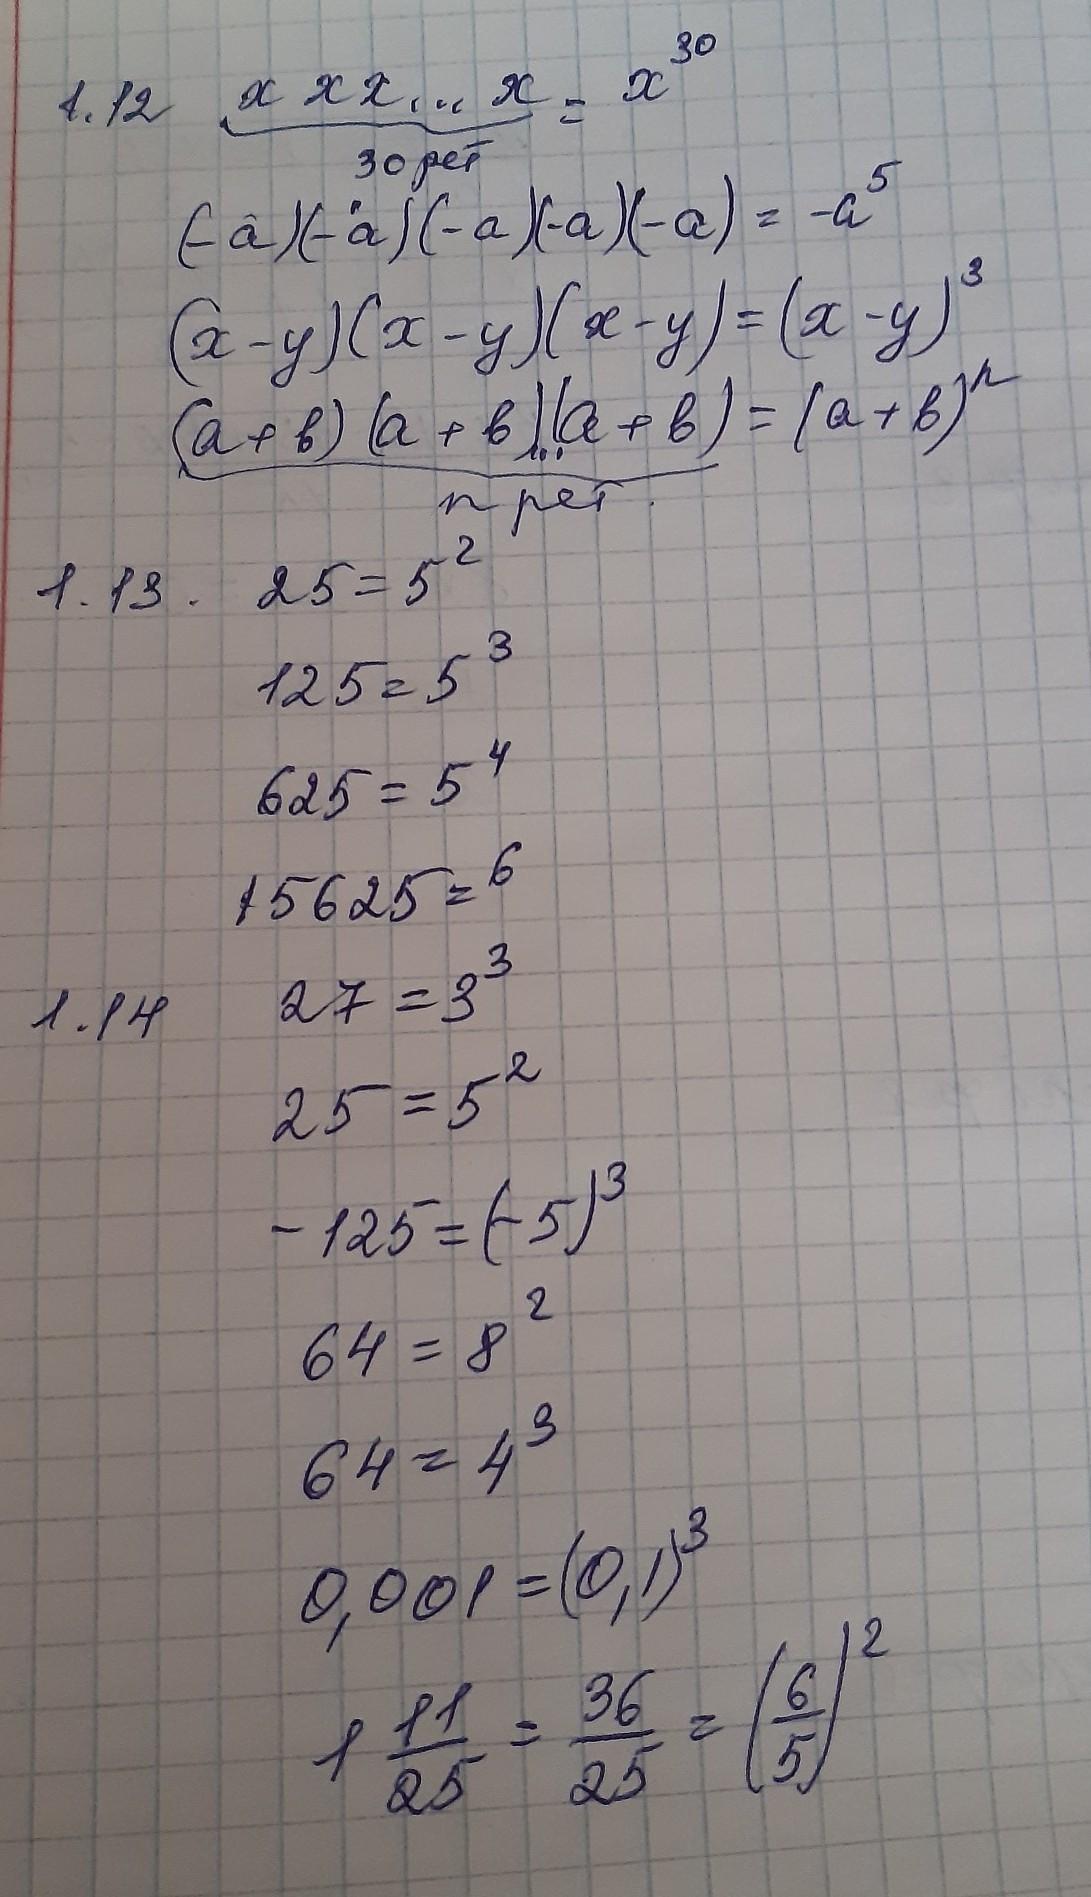 1.12 x x x ... x = x³⁰
30 рет
(-a)(-a)(-a)(-a)(-a) = -a⁵
(x-y)(x-y)(x-y)=(x-y)³
(a+в)(a+в)...(a+в)=(a+в)ⁿ
n рет.
1.13. 25=5²
125=5³
625=5⁴
15625=⁶
1.14 27=3³
25=5²
-125=(-5)³
64=8²
64=4³
0,001=(0,1)³
1 11/25 = 36/25 = (6/5)²